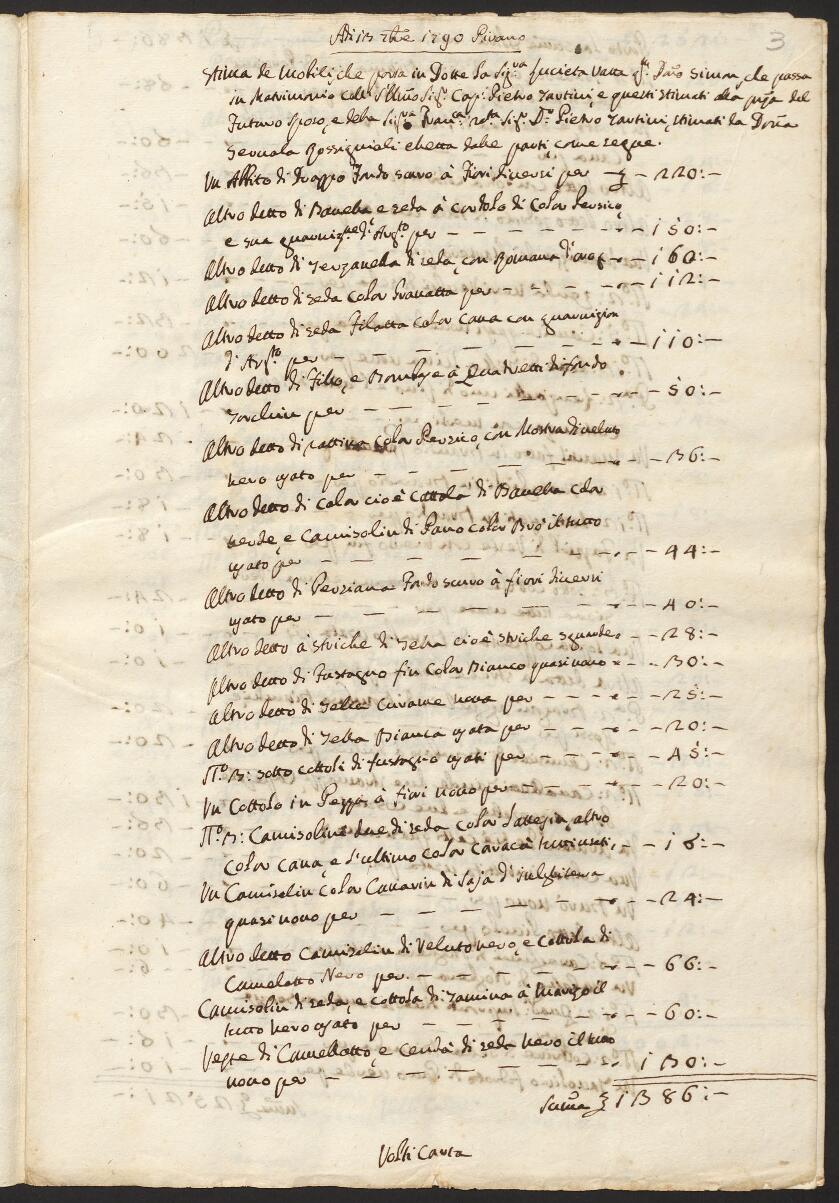 3
Adi 13 7bre 1790 Pirano
Stima de Mobili, che porta in Dotte la Sigra Lucieta Vatta qm Dno Simon, che passa
in Matrimonio coll Illmo Sigr Capn Pietro Tartini, e questi stimati alla prza del
Futuro Sposo, e della Sigra Franca rta Sigr Dr Pietro Tartini, stimati da Dona
Servola Rossignioli eletta dalle parti, come segue.
Un Abito di Drappo Fondo scuro à Fiori diversi per – 220:–
Altro detto di Bavella, e seda à cordolo di Color Persico,
e sua guarnizne d'Argto per – 150:–
Altro detto di Terzanella di seda, con Romana d'oro – 160:–
Altro detto di seda color Granatta per – 112:–
Altro detto di seda Filatta color cana con guarnizion
d'Argto per – 110:–
Altro detto di Fillo, e Bombaso à Quadretti di fondo
Torchin per – 50:–
Altro detto di rattina color Persico, con Mostra di veluto
nero usato per – 36:–
Altro detto di color cioè Cottola di Bavella color
verde, e Camisolin di Pano color Brò il tutto
usato per – 44:–
Altro detto di Persiana Fondo scuro à fiori diversi
usato per – 40:–
Altro detto à striche di Tella cioè striche – 28:–
Altro detto di Fustagno fin Color Bianco quasi novo – 30:–
Altro detto di Tella Curame nova per – 25:–
Altro detto di Tella Bianca usata per – 20:–
No 3: sotto cottoli di fustagno usati per – 45:–
Un Cottolo in Pezza à fiori novo per – 20:–
No 3: Camisolini due di seda color Lattesin, altro
color cana, e l'ultimo color cavacà tutti usati, – 16:–
Un Camisolin color Canarin di Saja d'inghilterra
quasi novo per – 24:–
Altro detto Camisolin di Veluto nero, e Cottola di
Camelotto Nero per – 66:–
Camisolin di seda, e cottola di Tamina à Marizo il
tutto nero usato per – 60:–
Veste di Camellotto, e Cendà di seda nero il tuto
novo per – 130:–
Suma 1386:–
Volti Carta